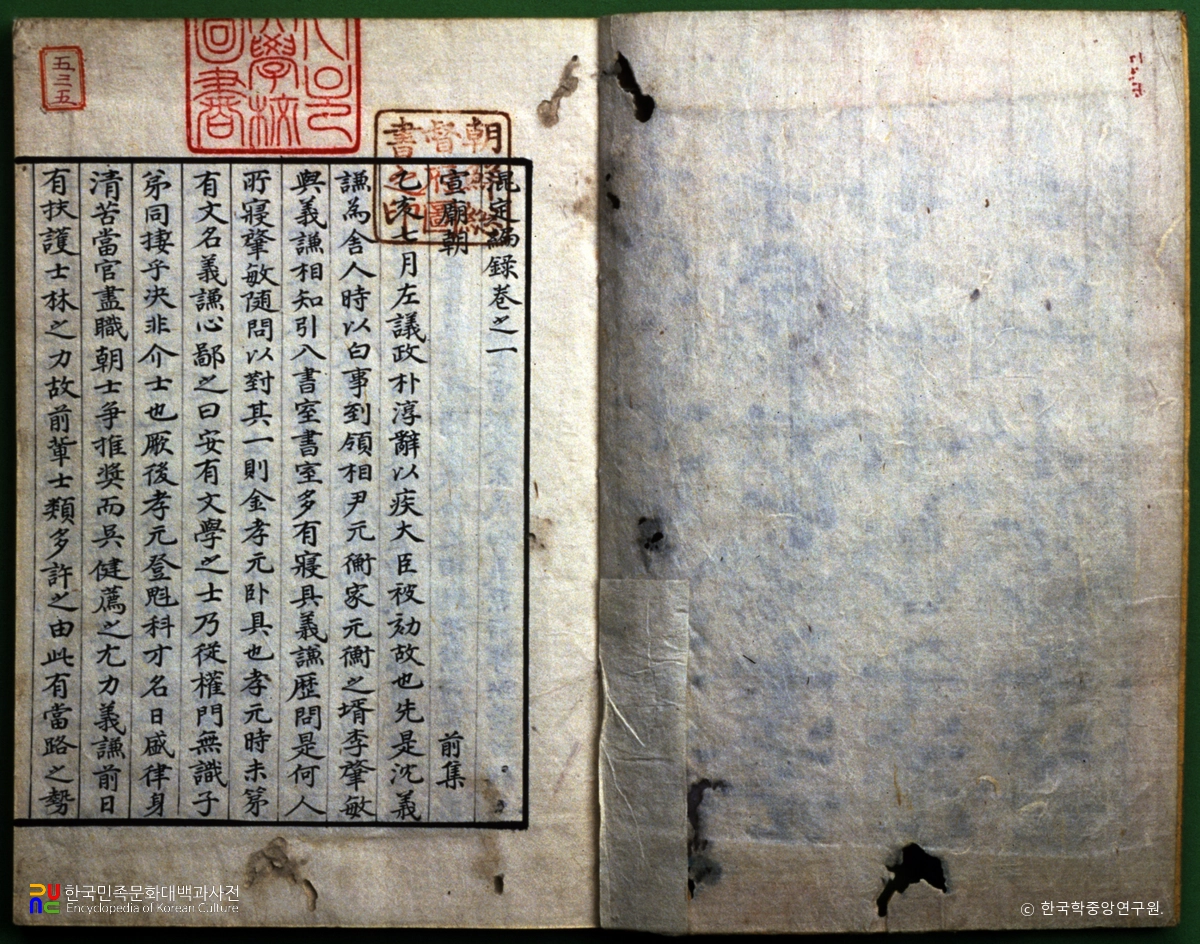 混定編錄卷之一
宣廟朝 前集
乙亥七月左議政朴淳辭以疾大臣被劾故也先是沈義
謙為舍人時以白事到領相尹元衡家元衡之壻李肇敏
與義謙相知引入書室書室多有寢具義謙歷問是何人
所寢肇敏隨問以對其一則金孝元臥具也孝元時未第
有文名義謙心鄙之曰安有文學之士乃從權門無識子
弟同捿乎决非介士也厥後孝元登魁科才名日盛律身
清苦當官盡職朝士爭推奬而吳健薦之尤力義謙前日
有扶護士林之力故前輩士類多許之由此有當路之勢
朝鮮總
督府圖
書之印
學校
圖書
五三五
한국민족문화대백과사전
Encyclopedia of Korean Culture
© 한국학중앙연구원.